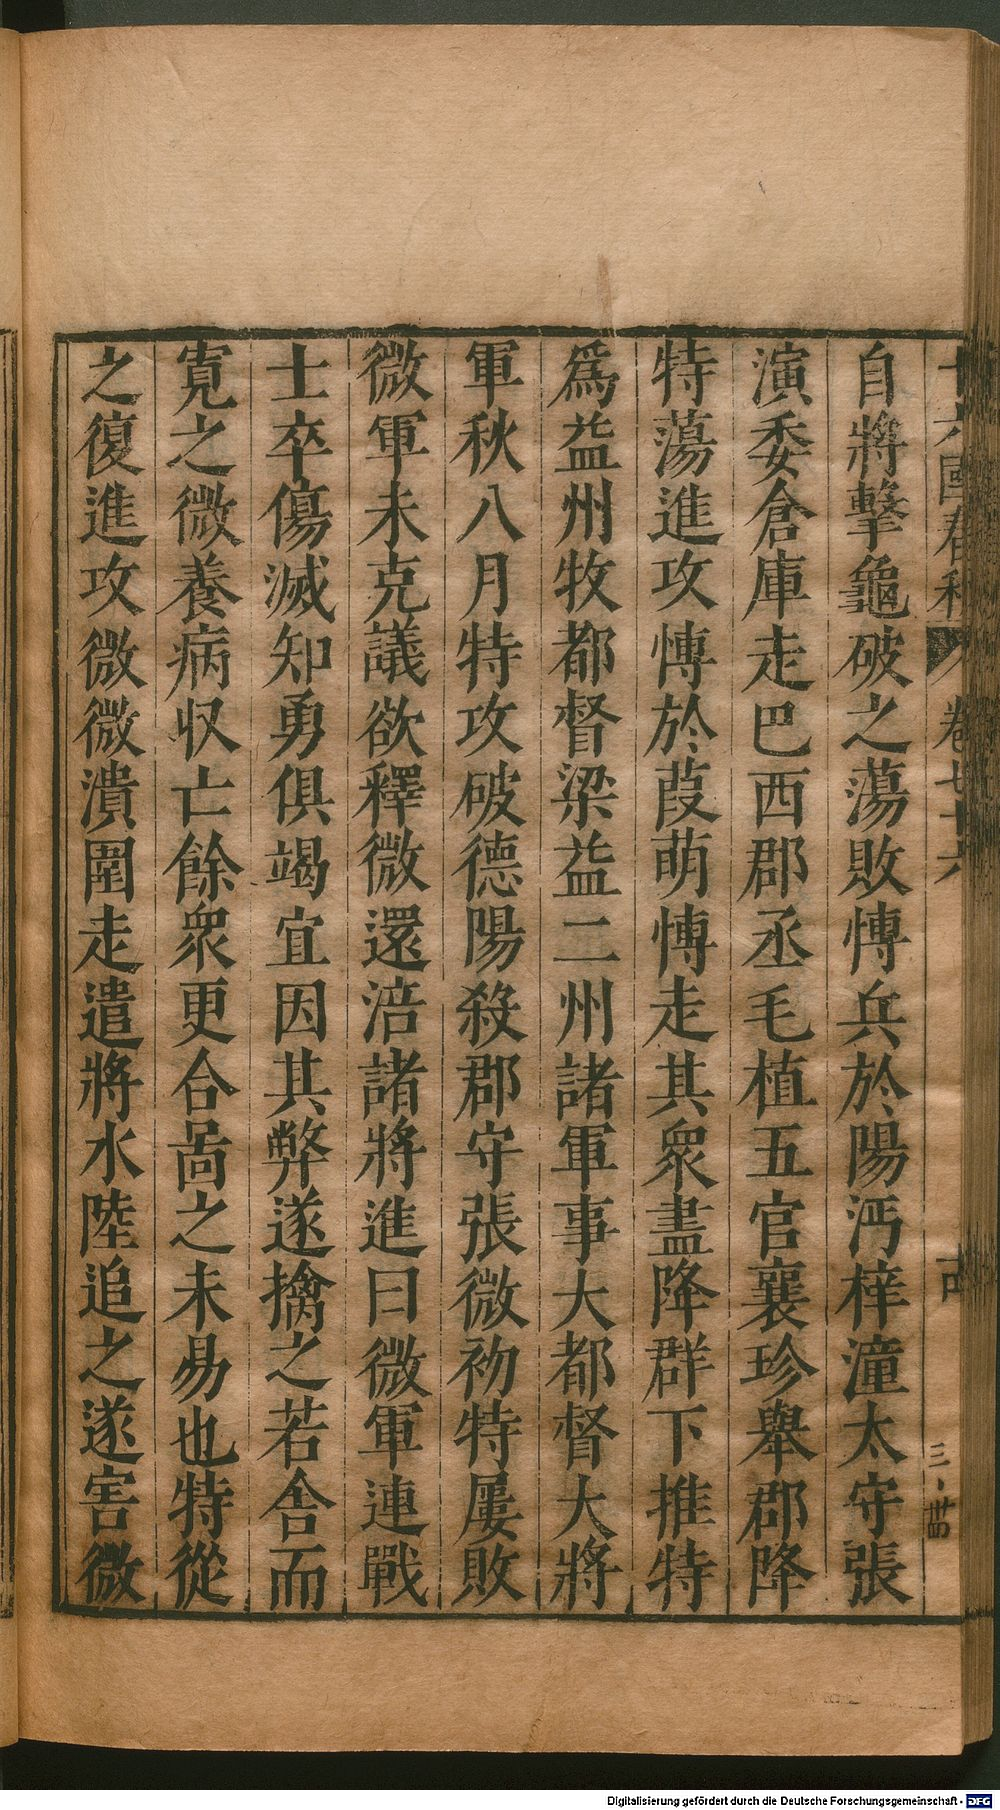 十六國春秋 卷七十六
自將擊龜破之蕩敗慱兵於陽沔梓潼太守張
演委倉庫走巴西郡丞毛植五官襄珍舉郡降
特蕩進攻慱於葭萌慱走其衆盡降群下推特
爲益州牧都督梁益二州諸軍事大都督大將
軍秋八月特攻破德陽殺郡守張微初特屢敗
微軍未克議欲釋微還涪諸將進曰微軍連戰
士卒傷滅知勇俱竭宜因其弊遂擒之若舍而
寬之微養病収亡餘衆更合啚之未易也特從
之復進攻微微潰圍走遣將水陸追之遂害微
Digitalisierung gefördert durch die Deutsche Forschungsgemeinschaft - DFG